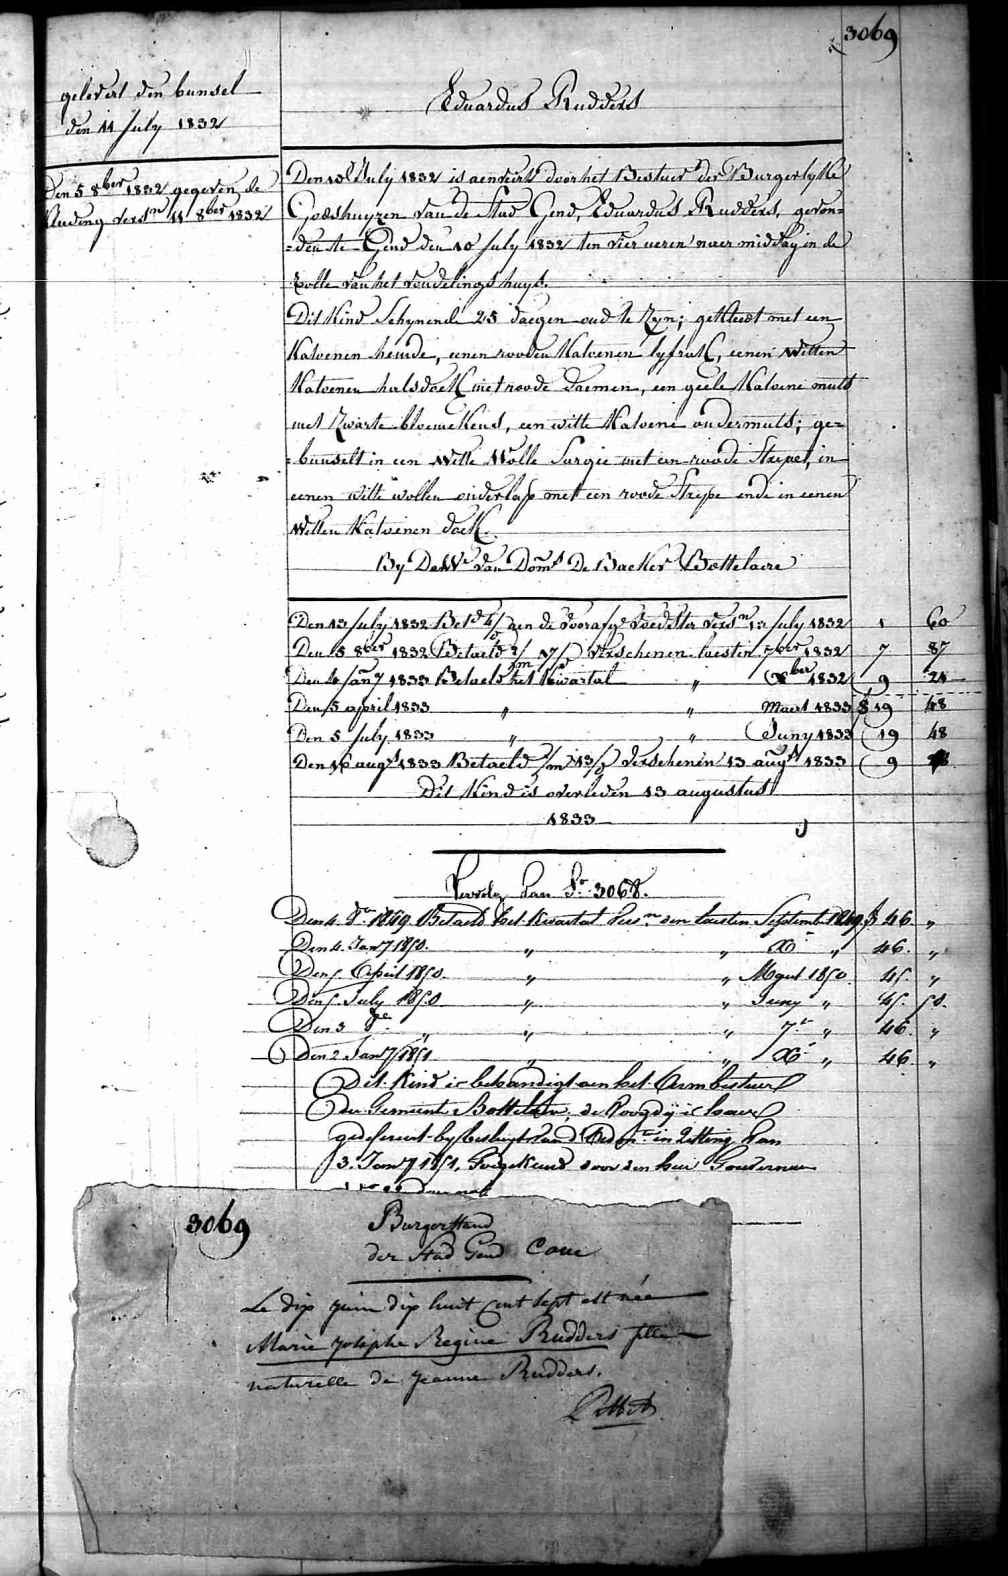 3069
gelevert den bunsel
den 11 July 1832
Den 5 8ber 1832 gegeven de
kleeding versn 11 8ber 1832
Eduardus Rudders
Den 10 July 1832 is aenveirt door het Bestuer der Burgerlyke
Godshuyzen van de stad Gend, Eduardus Rudders, gevon=
=den te Gend den 10 July 1832 ten vier ueren naer middag in de
rolle van het vondelings huys.
Dit kind schynende 25 daegen oud te zyn; gekleed met een
katoenen hemde, eenen rooden katoenen lyfrok, eenen witten
katoenen halsdoek met roode baemen, een geele katoene muts
met zwarte bloemekens, een witte katoene ondermuts; ge=
=bunselt in een witte wolle sargie met een roode streepe, in
eenen witte wollen onderlap met een roode strype ende in eenen
witten katoenen doek.
By De We van Doms De Backer Bottelaere
Den 13 July 1832 Betd aen de voorafge voedster versn 13 July 1832 1 60
Den 5 8ber 1832 Betaeld 2/m 17/d verschenen laesten 7ber 1832 7 87
Den 4 Jany 1833 Betaeld het kwartal " Xber 1832 9 24
Den 5 april 1833 " " Maert 1833 19 48
Den 5 July 1833 " " Juny 1833 19 48
Den 16 augt 1833 Betaeld /m 13/d verschenen 13 augt 1833 9
Dit kind is overleden 13 augustus
1833
Vervolg van Nr 3068.
Den 4. 8r 1849 Betaeld het kwartal versn den laesten Septembr 1849 46. "
Den 4. Jany 1850. " " Xr " 46. "
Den 5. April 1850. " " Maert 1850 45. "
Den 5. July 1850 " " Juny " 45. 50.
Den 3 8re " " " 7r " 46. "
Den 2 Jany 1851 " " Xr " 46. "
Dit kind is behandigt aen het Armbestuer
der Gemeente Bottelaere, de Voogdy is haer
gedefereert by besluyt van in zitting van
3. Jany 1851. Goedgekeurd door den heer Gouverneur
3069
Burgerstand
der stad Gend Coue
Le dix juin dix huit cent sept est née
Marie Josephe Regine Rudders fille
naturelle de Jeanne Rudders.